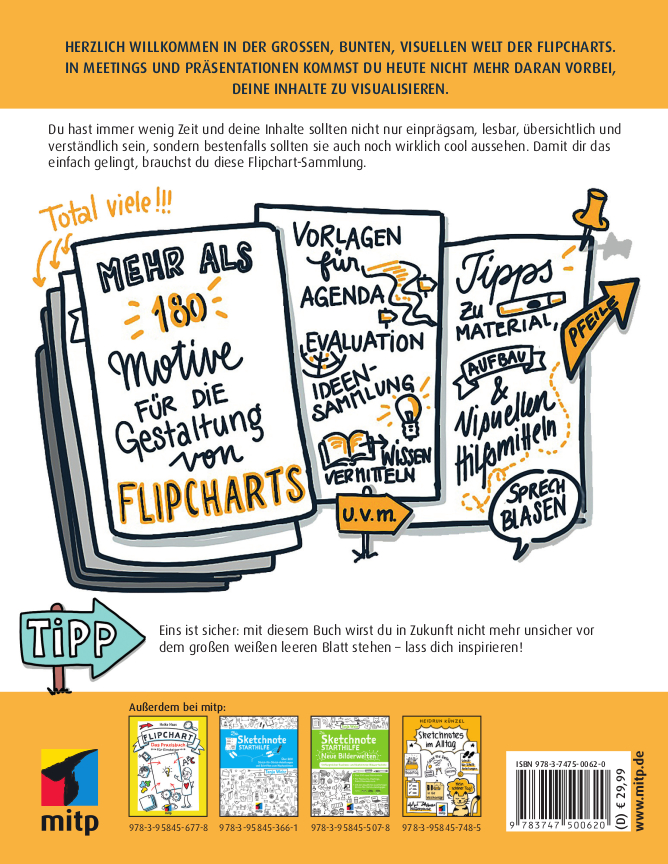 HERZLICH WILLKOMMEN IN DER GROSSEN, BUNTEN, VISUELLEN WELT DER FLIPCHARTS.
IN MEETINGS UND PRÄSENTATIONEN KOMMST DU HEUTE NICHT MEHR DARAN VORBEI,
DEINE INHALTE ZU VISUALISIEREN.
Du hast immer wenig Zeit und deine Inhalte sollten nicht nur einprägsam, lesbar, übersichtlich und
verständlich sein, sondern bestenfalls sollten sie auch noch wirklich cool aussehen. Damit dir das
einfach gelingt, brauchst du diese Flipchart-Sammlung.
Total viele!!!
MEHR ALS
180
Motive
FÜR DIE
Gestaltung
von
FLIPCHARTS
VORLAGEN
für
AGENDA
EVALUATION
IDEEN-
SAMMLUNG
WISSEN
VERMITTELN
u.v.m.
Tipps
Zu
MATERIAL,
AUFBAU
&
Visuellen
Hilfsmitteln
PFEILE
SPRECH
BLASEN
TiPP
Eins ist sicher: mit diesem Buch wirst du in Zukunft nicht mehr unsicher vor
dem großen weißen leeren Blatt stehen – lass dich inspirieren!
Außerdem bei mitp:
Heike Haas
FLIPCHART
Das Praxisbuch
978-3-95845-677-8
Die
Sketchnote
STARTHILFE
Tanja Wehr
978-3-95845-366-1
Die
Sketchnote
STARTHILFE
Neue Bilderwelten
978-3-95845-507-8
HEIDRUN KÜNZEL
Sketchnotes
im Alltag
978-3-95845-748-5
mitp
ISBN 978-3-7475-0062-0
9 783747 500620
(D) € 29,99
www.mitp.de